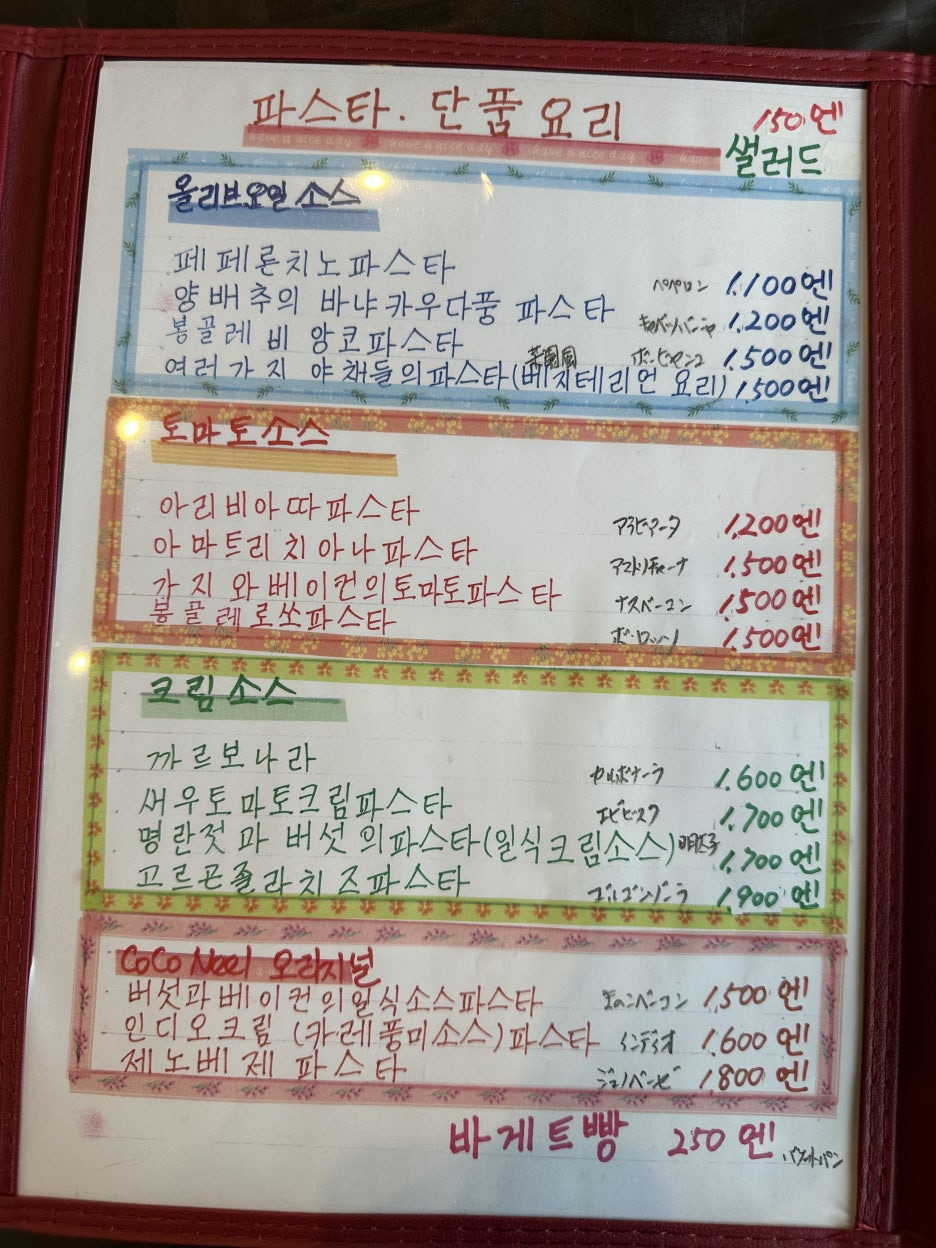 파스타. 단품요리
150엔
샐러드
올리브오일 소스
페페론치노파스타 ペペロン 1,100엔
양배추의 바냐카우다풍 파스타 キャベツバーニャ 1,200엔
봉골레 비앙코파스타 ボービヤンコ 1,500엔
菜園風
여러가지 야채들의파스타(베지테리언 요리) 1,500엔
토마토소스
아리비아따파스타 アラビアータ 1,200엔
아마트리치아나파스타 アマトリチャーナ 1,500엔
가지와베이컨의토마토파스타 ナスベーコン 1,500엔
봉골레로쏘파스타 ボーロッソ 1,500엔
크림소스
까르보나라 カルボナーラ 1,600엔
새우토마토크림파스타 エビビスク 1,700엔
명란젓과 버섯의파스타(일식크림소스) 明太子 1,700엔
고르곤졸라치즈파스타 ゴルゴンゾーラ 1,900엔
CoCo Neel 오리지널
버섯과베이컨의일식소스파스타 1,500엔
인디오크림 (카레풍미소스)파스타 インディオ 1,600엔
제노베제 파스타 ジェノベーゼ 1,800엔
바게트빵 250엔